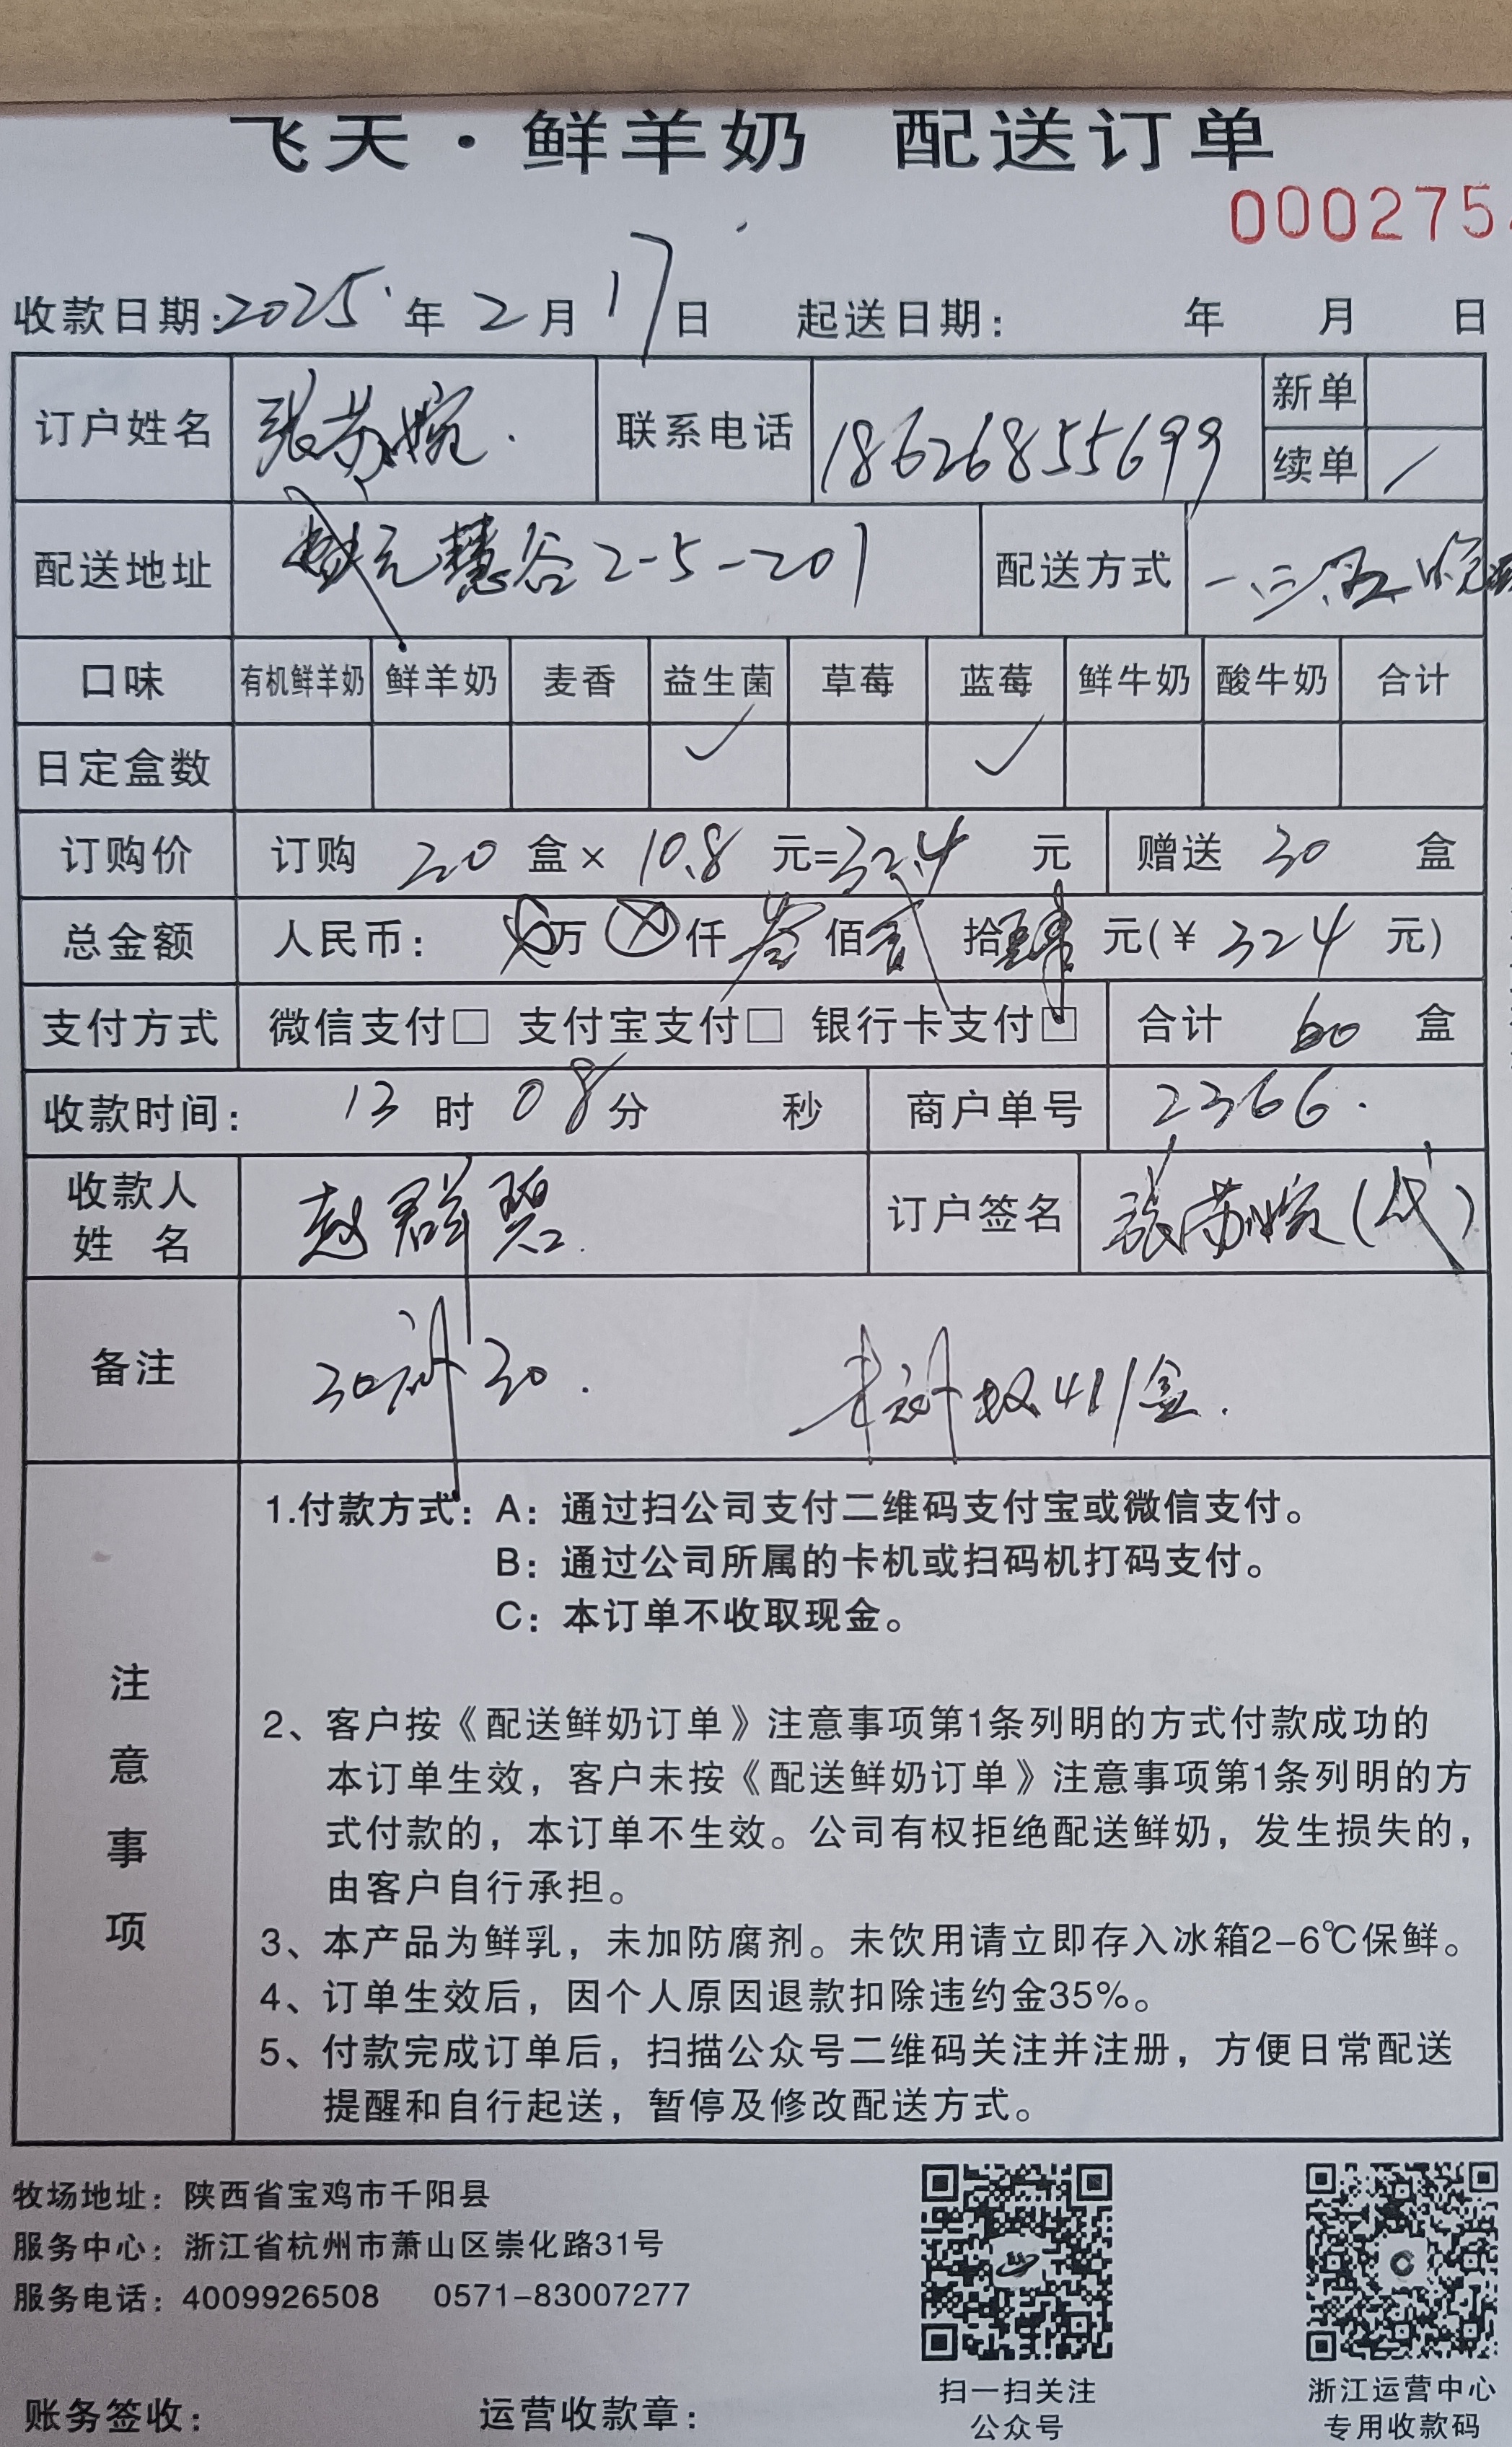 飞天·鲜羊奶 配送订单
000275
收款日期:2025年2月17日 起送日期: 年 月 日
订户姓名 张苏婉 联系电话 18626855699 新单
续单 /
配送地址 元慧谷2-5-201 配送方式 一、三、五
口味 有机鲜羊奶 鲜羊奶 麦香 益生菌 草莓 蓝莓 鲜牛奶 酸牛奶 合计
日定盒数 ✓ ✓
订购价 订购 30 盒× 10.8 元=324 元 赠送 30 盒
总金额 人民币: 万 仟 叁 佰 贰 拾 肆 元(¥ 324 元)
支付方式 微信支付□ 支付宝支付□ 银行卡支付□ 合计 60 盒
收款时间: 13 时 08 分 秒 商户单号 2366.
收款人姓名 赵群碧 订户签名 张苏婉(代)
备注 30 30.
注意事项
1.付款方式:A:通过扫公司支付二维码支付宝或微信支付。
B:通过公司所属的卡机或扫码机打码支付。
C:本订单不收取现金。
2、客户按《配送鲜奶订单》注意事项第1条列明的方式付款成功的
本订单生效,客户未按《配送鲜奶订单》注意事项第1条列明的方
式付款的,本订单不生效。公司有权拒绝配送鲜奶,发生损失的,
由客户自行承担。
3、本产品为鲜乳,未加防腐剂。未饮用请立即存入冰箱2-6℃保鲜。
4、订单生效后,因个人原因退款扣除违约金35%。
5、付款完成订单后,扫描公众号二维码关注并注册,方便日常配送
提醒和自行起送,暂停及修改配送方式。
牧场地址:陕西省宝鸡市千阳县
服务中心:浙江省杭州市萧山区崇化路31号
服务电话:4009926508 0571-83007277
扫一扫关注
公众号
浙江运营中心
专用收款码
账务签收: 运营收款章: